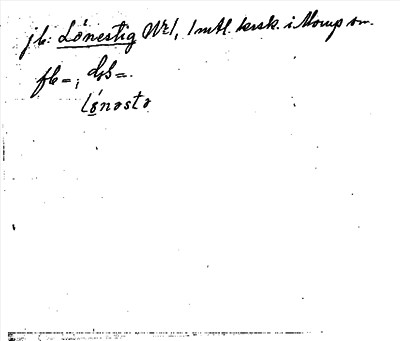 jb: Lónestig No 1, 1 mtl. kersk. i Morup sn.
fb =; dsb =.
lónəstə